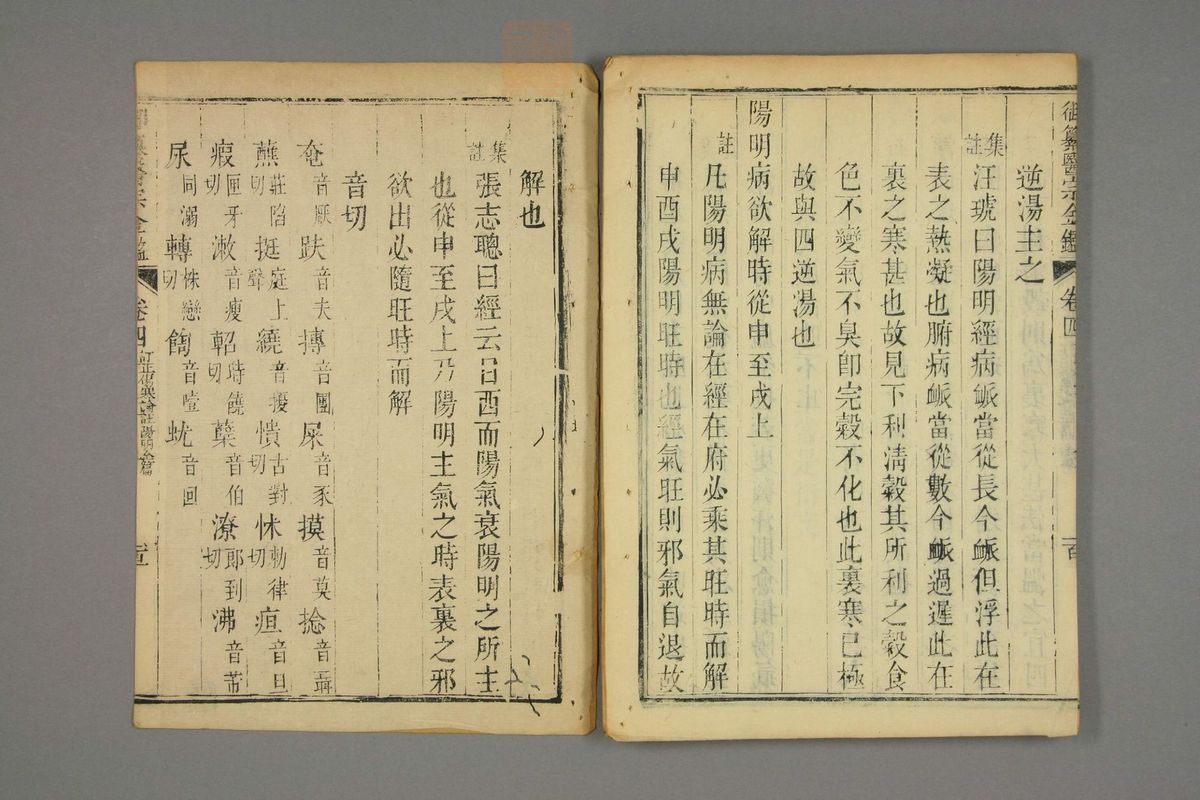 御纂醫宗金鑑 卷四
逆湯主之
集註 汪琥曰陽明經病脈當從長今脈但浮此在
表之熱凝也腑病脈當從數今脈過遲此在
裏之寒甚也故見下利淸穀其所利之穀食
色不變氣不臭卽完穀不化也此裏寒已極
故與四逆湯也
陽明病欲解時從申至戌上
註 凡陽明病無論在經在府必乘其旺時而解
申酉戌陽明旺時也經氣旺則邪氣自退故
解也
集註 張志聰曰經云日西而陽氣衰陽明之所主
也從申至戌上乃陽明主氣之時表裏之邪
欲出必隨旺時而解
音切
奄音厭 趺音夫 摶音團 屎音豕 摸音莫 捻音聶
蘸莊陷切 挺庭上聲 繞音擾 憒古對切 怵勅律切 疸音旦
瘕匣牙切 漱音瘦 軺時饒切 蘗音伯 潦郎到切 沸音芾
尿同溺 轉株戀切 饐音噎 蚘音回
御纂醫宗金鑑 卷四 訂正傷寒論註陽明全篇